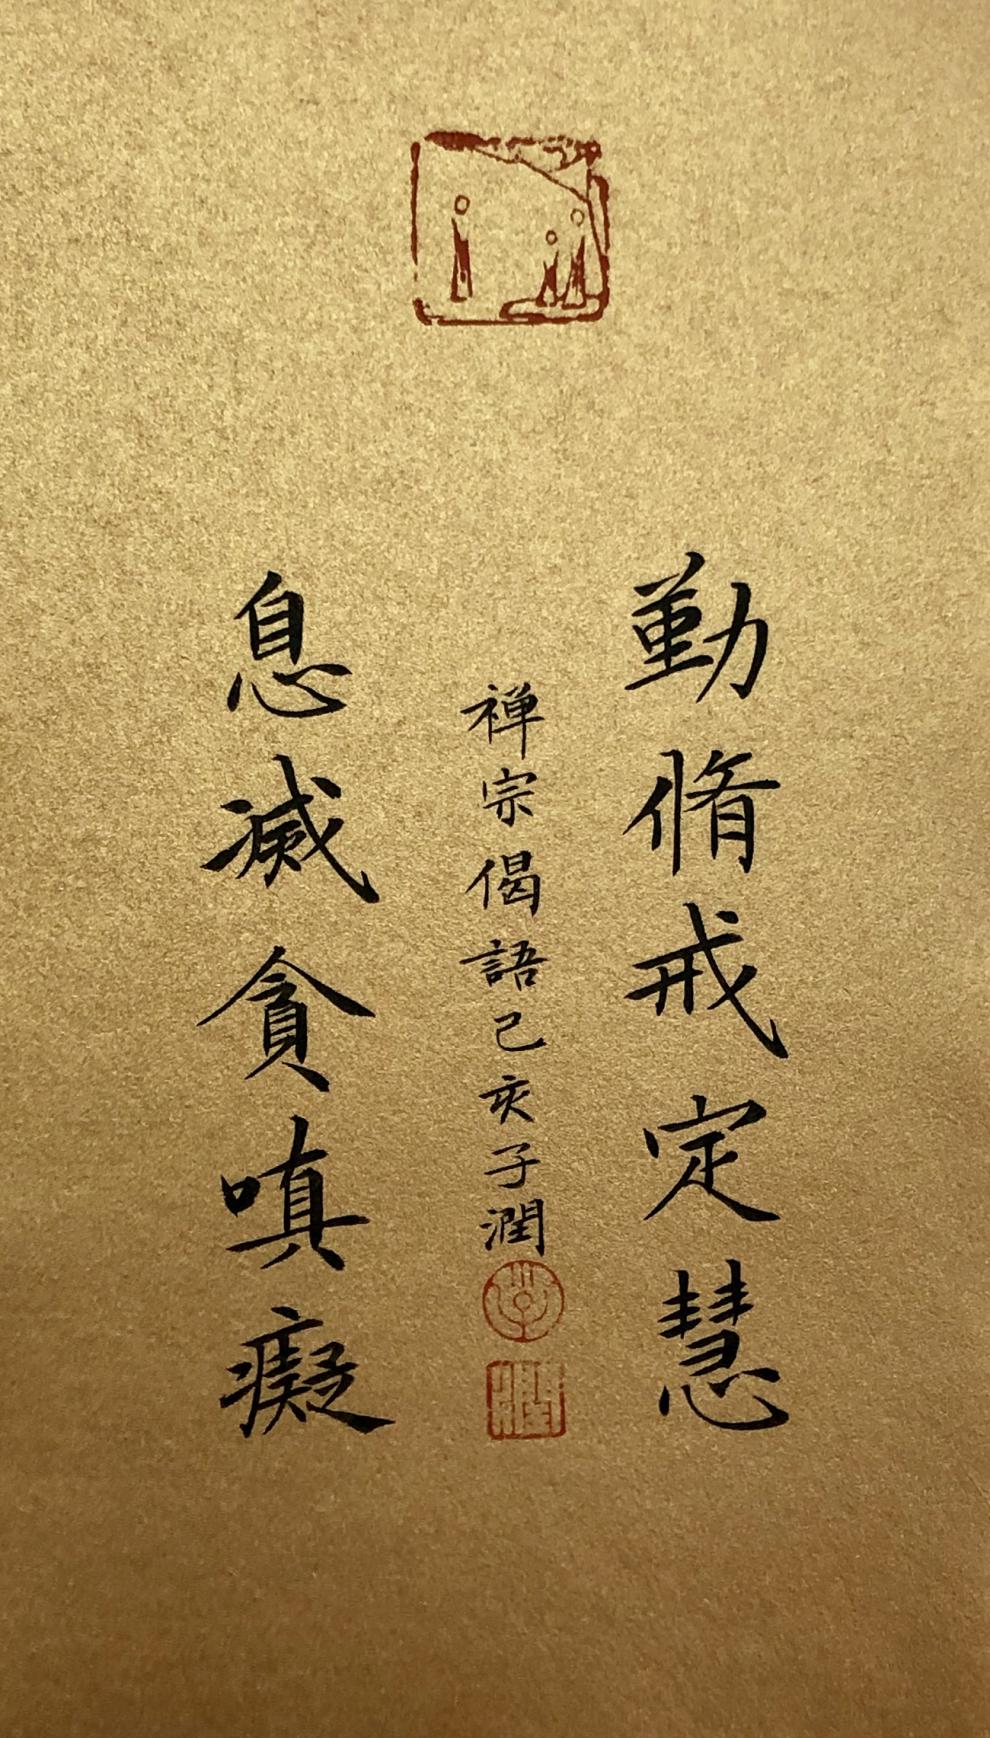 勤脩戒定慧
禅宗偈語己亥子潤
息滅貪嗔癡